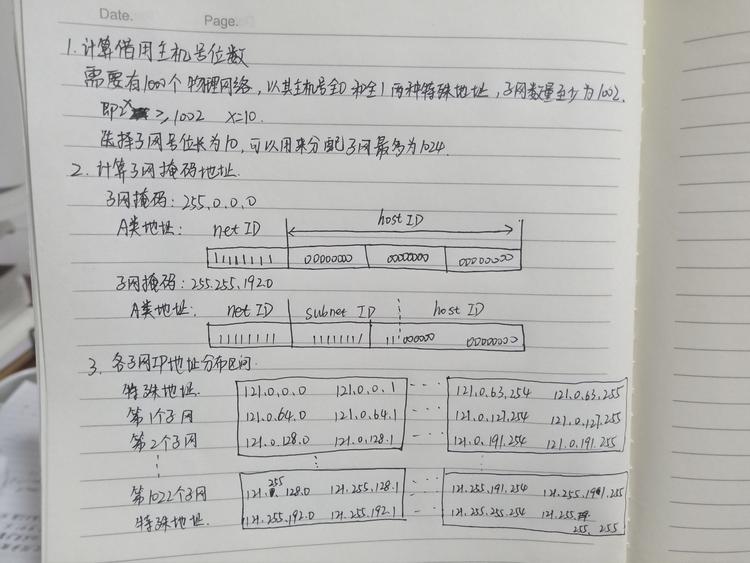 Date. Page.
1.计算借用主机号位数
需要有1000个物理网络,以其主机号全0和全1两种特殊地址,子网数量至少为1002.
即2ˣ ≥1002 x=10.
选择子网号位长为10,可以用来分配子网最多为1024.
2.计算子网掩码地址.
子网掩码:255.0.0.0
A类地址: net ID host ID
11111111 00000000 00000000 00000000
子网掩码:255.255.192.0
A类地址: net ID subnet ID host ID
11111111 11111111 11000000 00000000
3.各子网IP地址分布区间.
特殊地址 121.0.0.0 121.0.0.1 ... 121.0.63.254 121.0.63.255
第1个子网 121.0.64.0 121.0.64.1 ... 121.0.127.254 121.0.127.255
第2个子网 121.0.128.0 121.0.128.1 ... 121.0.191.254 121.0.191.255
第1022个子网 121.255.128.0 121.255.128.1 ... 121.255.191.254 121.255.191.255
特殊地址. 121.255.192.0 121.255.192.1 ... 121.255.255.254 121.255.255.255